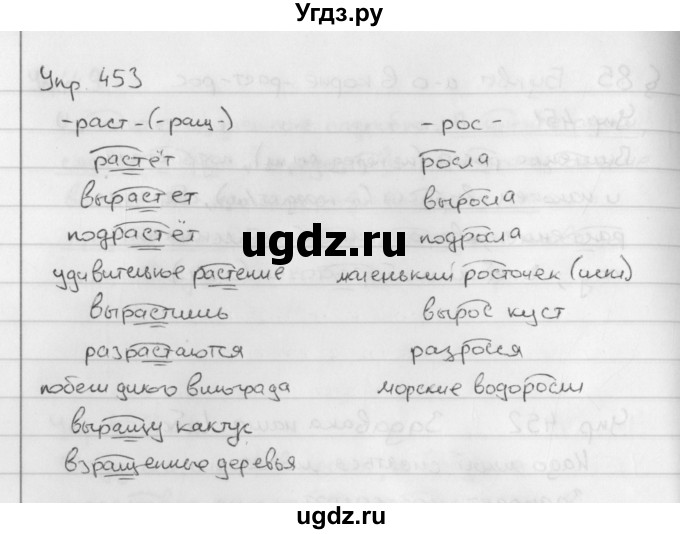 Угдз.ру
Упр. 453
-раст-(-ращ-) -рос-
растёт росла
вырастет выросла
подрастёт подросла
удивительное растение маленький росточек (искл)
вырастишь вырос куст
разрастаются разросся
побеги дикого винограда морские водоросли
выращу кактус
взращенные деревья
ugdz.ru
ugdz.ru